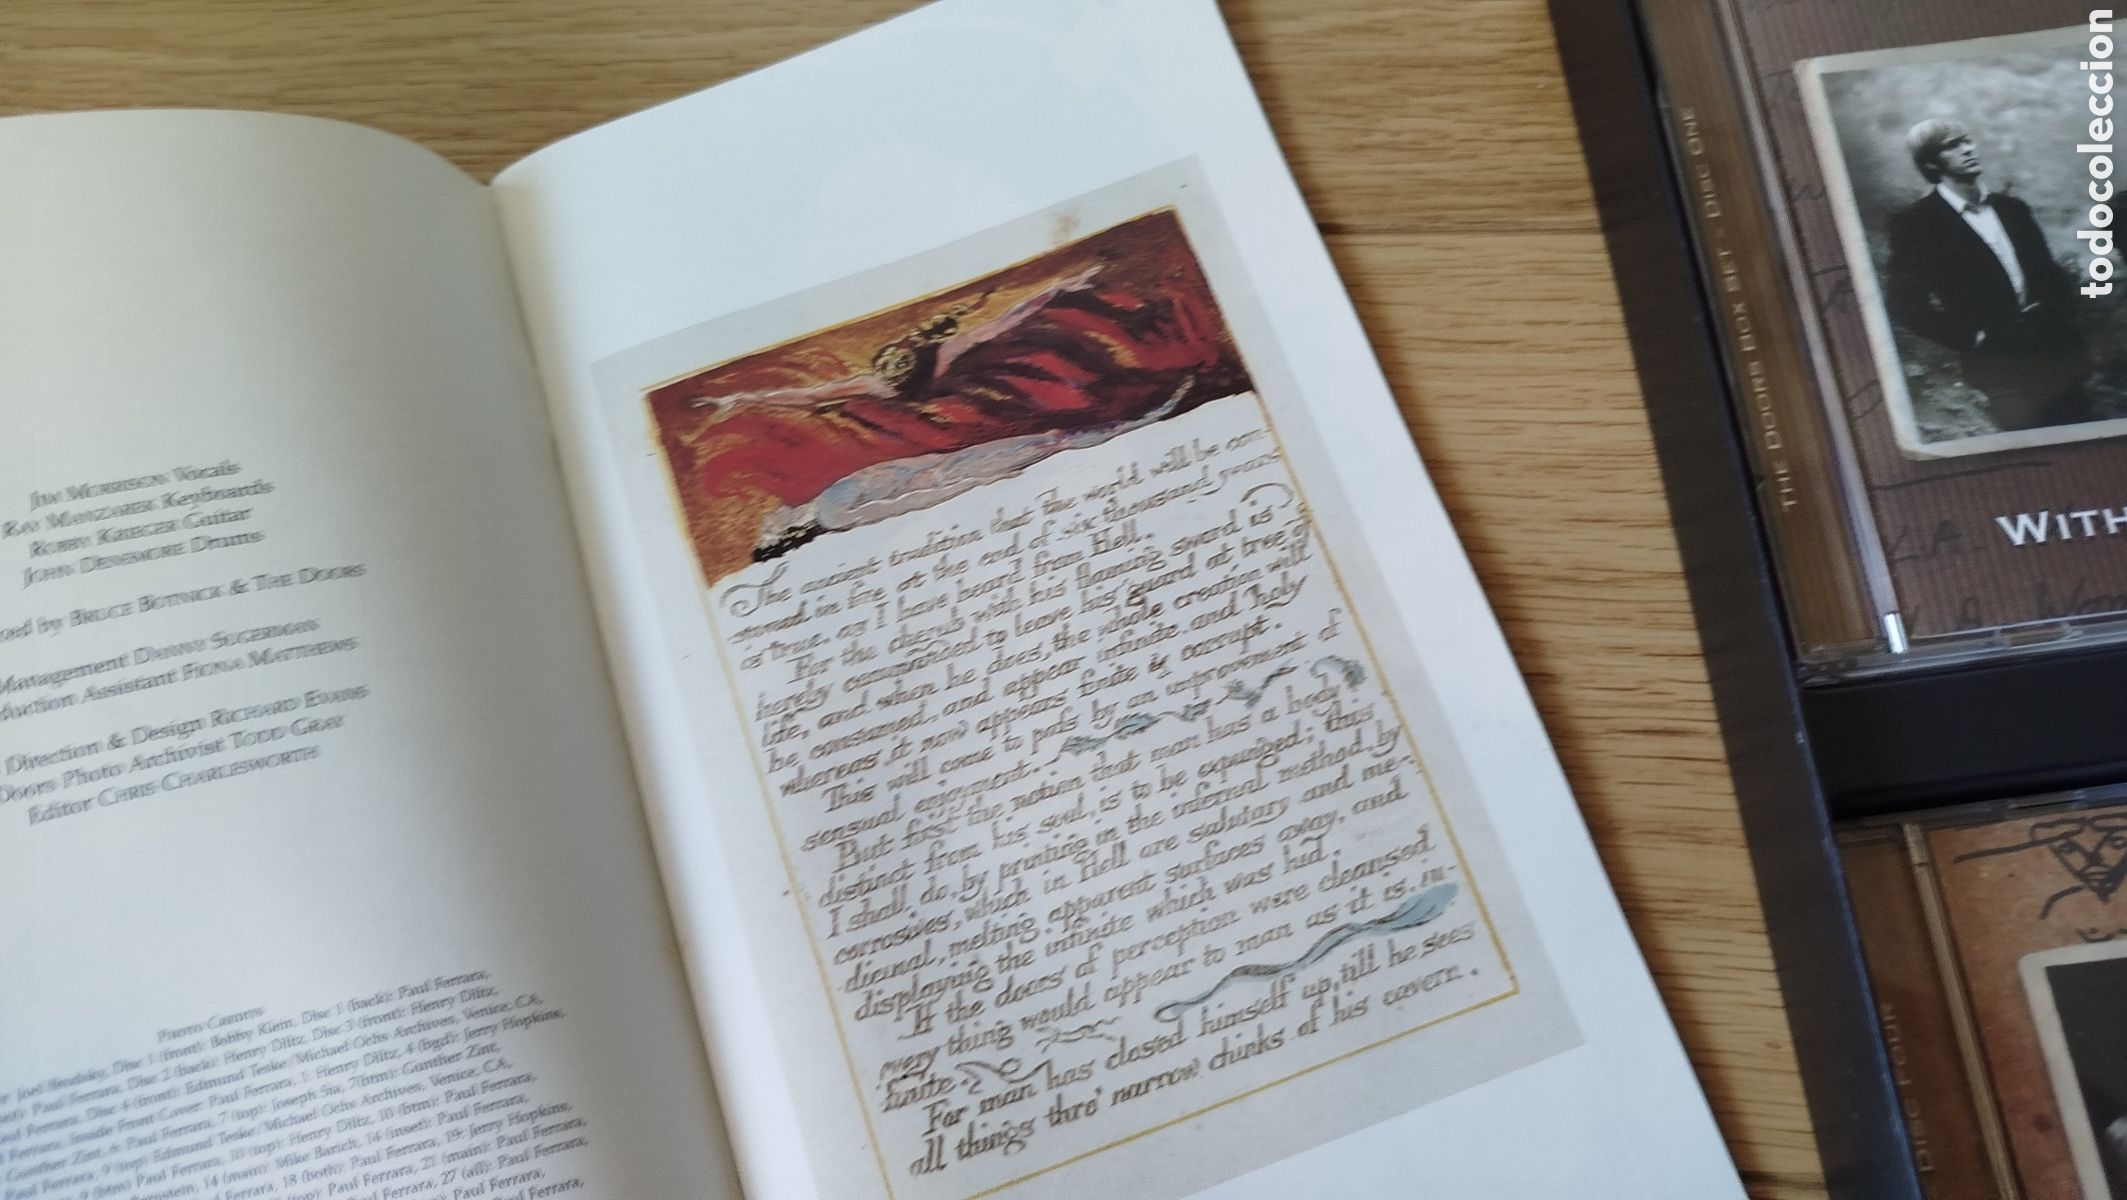 JIM MORRISON Vocals
RAY MANZAREK Keyboards
ROBBY KRIEGER Guitar
JOHN DENSMORE Drums
by BRUCE BOTNICK & THE DOORS
Management DANNY SUGERMAN
Assistant FIONA MATTHEWS
Direction & Design RICHARD EVANS
Doors Photo Archivist TODD GRAY
Editor CHRIS CHARLESWORTH
PHOTO CREDITS
Joel Brodsky, Disc 1 (front): Bobby Klein, Disc 1 (back): Paul Ferrara,
Paul Ferrara, Disc 2 (back): Henry Diltz, Disc 3 (front): Henry Diltz,
Paul Ferrara, Disc 4 (front): Edmund Teske/Michael Ochs Archives, Venice, CA,
Ferrara, Inside Front Cover: Paul Ferrara, 1: Henry Diltz, 4 (bgd): Jerry Hopkins,
Gunther Zint, 6: Paul Ferrara, 7 (top): Joseph Sia, 7(btm): Gunther Zint,
Paul Ferrara, 9 (top) Edmund Teske/Michael Ochs Archives, Venice, CA,
9 (btm) Paul Ferrara, 10 (top): Henry Diltz, 10 (btm): Paul Ferrara,
14 (main): Mike Barich, 14 (inset): Paul Ferrara, 19: Jerry Hopkins,
18 (both): Paul Ferrara, 21 (main): Paul Ferrara,
Paul Ferrara, 27 (all): Paul Ferrara,
Paul Ferrara,
The ancient tradition that the world will be con-
-sumed in fire at the end of six thousand years
is true. as I have heard from Hell.
For the cherub with his flaming sword is
hereby commanded to leave his guard at tree of
life, and when he does, the whole creation will
be consumed, and appear infinite. and holy
whereas it now appears finite & corrupt.
This will come to pass by an improvement of
sensual enjoyment.
But first the notion that man has a body
distinct from his soul, is to be expunged; this
I shall do, by printing in the infernal method, by
corrosives, which in Hell are salutary and me-
-dicinal, melting apparent surfaces away, and
displaying the infinite which was hid.
If the doors of perception were cleansed
every thing would appear to man as it is, in-
-finite.
For man has closed himself up, till he sees
all things thro' narrow chinks of his cavern.
THE DOORS BOX SET - DISC ONE
L.A.
WITH
L.A. Wo
DISC FOUR
todocoleccion